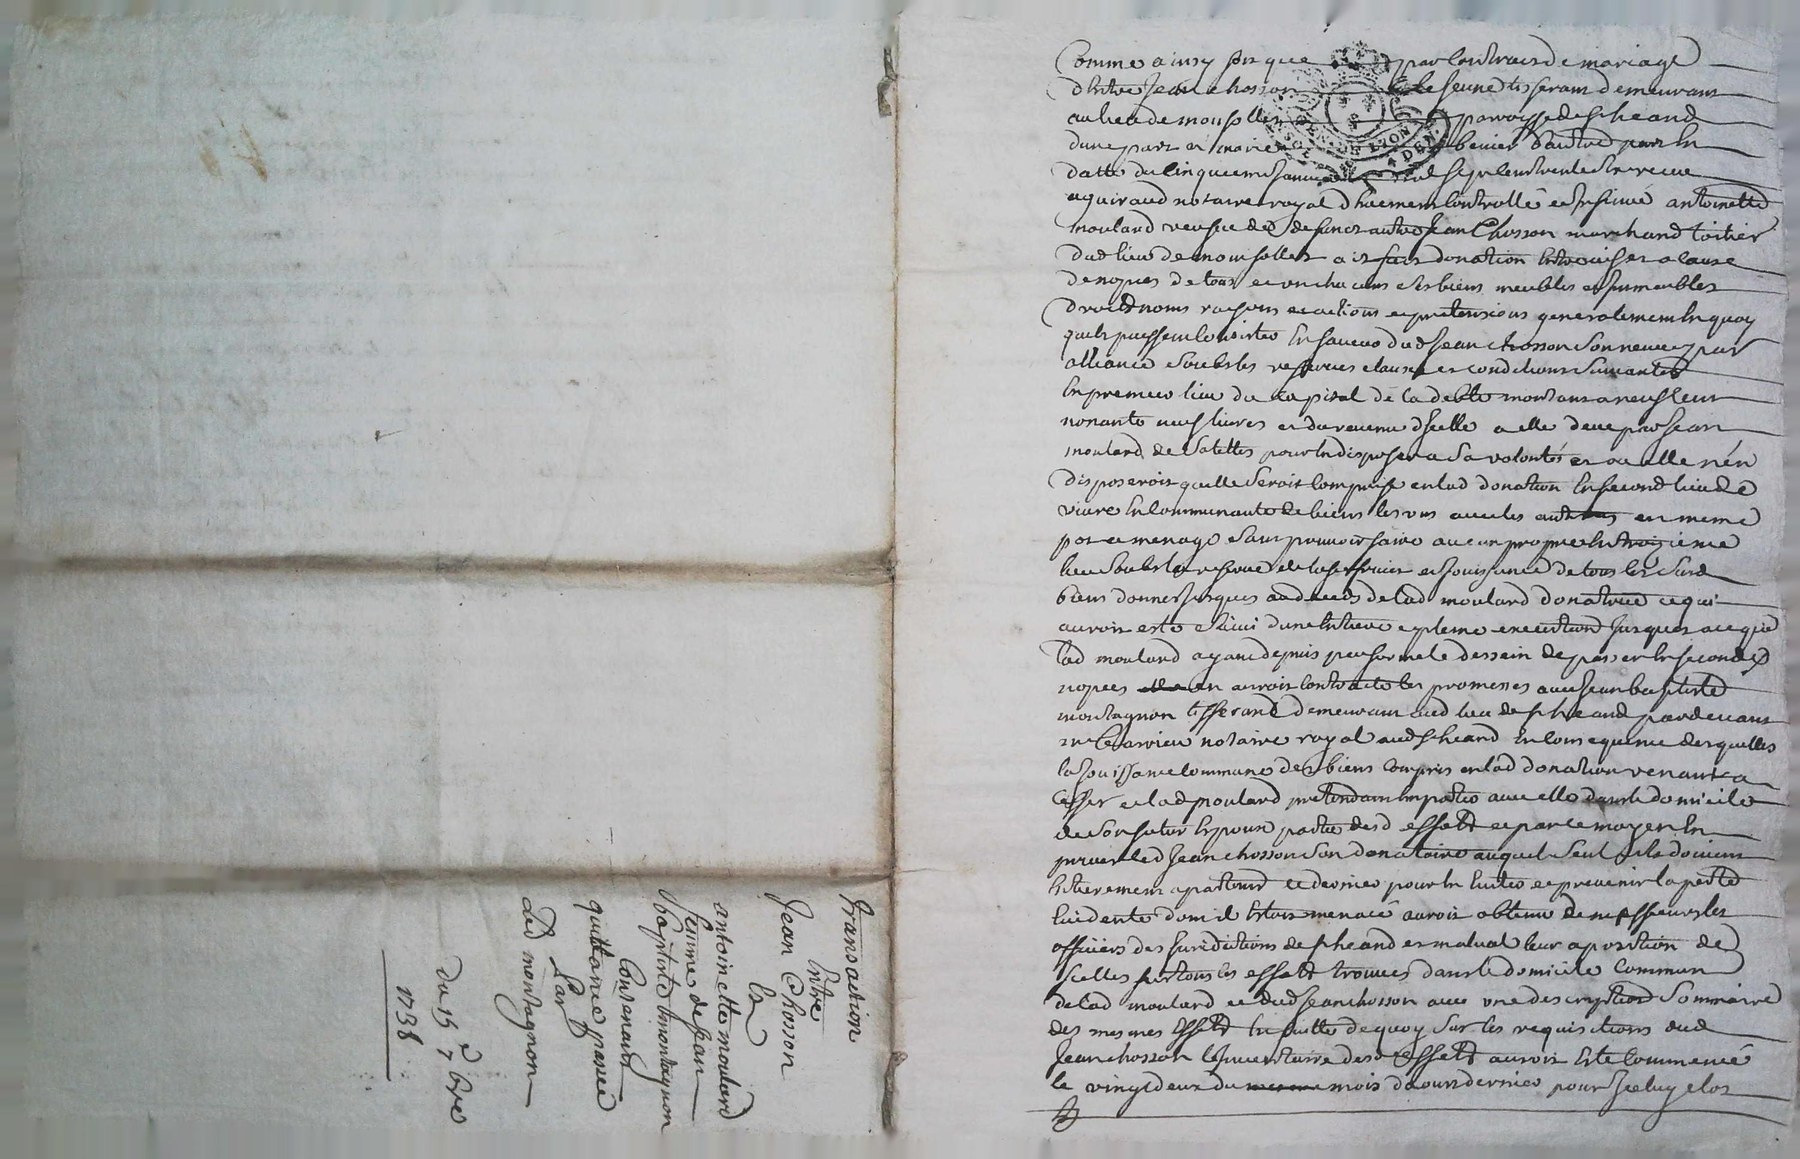 Transaction
Entre
Jean Chosson
Et
antoinette moulard
femme de Jean
baptiste montagnon
Contenant
quittance passée
Par
led montagnon
Du 15 7bre
1738
Comme ainsy soit que par contract de mariage
d'Entre Jean chosson le Jeune tisserant demeurant
au lieu de paroisse de
d'une part et marie d'autre part En
datte du cinquieme Janvier mil sept cent trente
notaire royal controllé et Insinué antoinette
moulard veufve de deffunct autre Jean Chosson marchand
dud lieu de a it fait donation Entre vifs et a cause
de nopces de tous et un chacuns ses biens meubles et Immeubles
droits noms raisons et actions et pretensions generalement En quoy
qu'ils puissent consister En faveur dud Jean chosson son neveu par
alliance soubs les reserves clauses et conditions suivantes
En premier lieu du capital de la debte montant a neuf cent
nonante neuf livres et du revenu d'Icelle a elle deue par Jean
moulard de pour En disposer a sa volonté et ou elle n'en
disposeroit qu'elle seroit comprise en lad donation En second lieu de
vivre En communauté de biens les uns avec les autres en meme
pot et menage sans pouvoir faire aucun propre En troizieme
lieu soubs la reserve de l'usufruit et Jouissance de tous les susd
biens donnes Jusques au deceds de lad moulard donatrice ce qui
auroit esté suivi d'une Entiere et pleine execution Jusques a ce que
lad moulard ayant depuis peu formé le dessein de passer En secondes
nopces en auroit contracté les promesses avec Jean baptiste
montagnon tisserand demeurant aud lieu de par devant
notaire royal aud En consequence desquelles
la Jouissance commune des biens compris en lad donation venant a
cesser et lad moulard pretendant Emporter avec elle dans le domicile
de son futur Epoux partie desd effets et par ce moyen En
priver led Jean chosson son donataire auquel seul Ils doivent
Entierement apartenir ce dernier pour En Eviter et prevenir la perte
Evidente dont il Estoit menacé auroit obtenu de messieurs les
officiers des Jurisdictions de et malval leur aposition de
scelles sur tous les effets trouves dans le domicile commun
de lad moulard et dud Jean chosson avec une description sommaire
des mesmes Effets En suitte de quoy sur les requisitions dud
Jean chosson l'Inventaire desd Effets auroit Esté commencé
le vingt deux du mois d'aoust dernier pour Iceluy clos